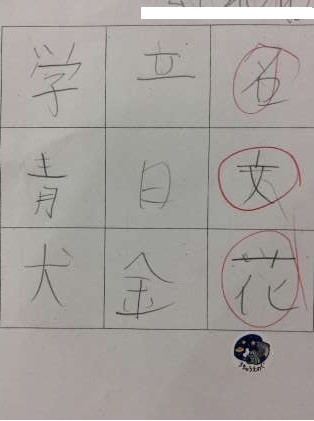 名文花
立日金
学青犬